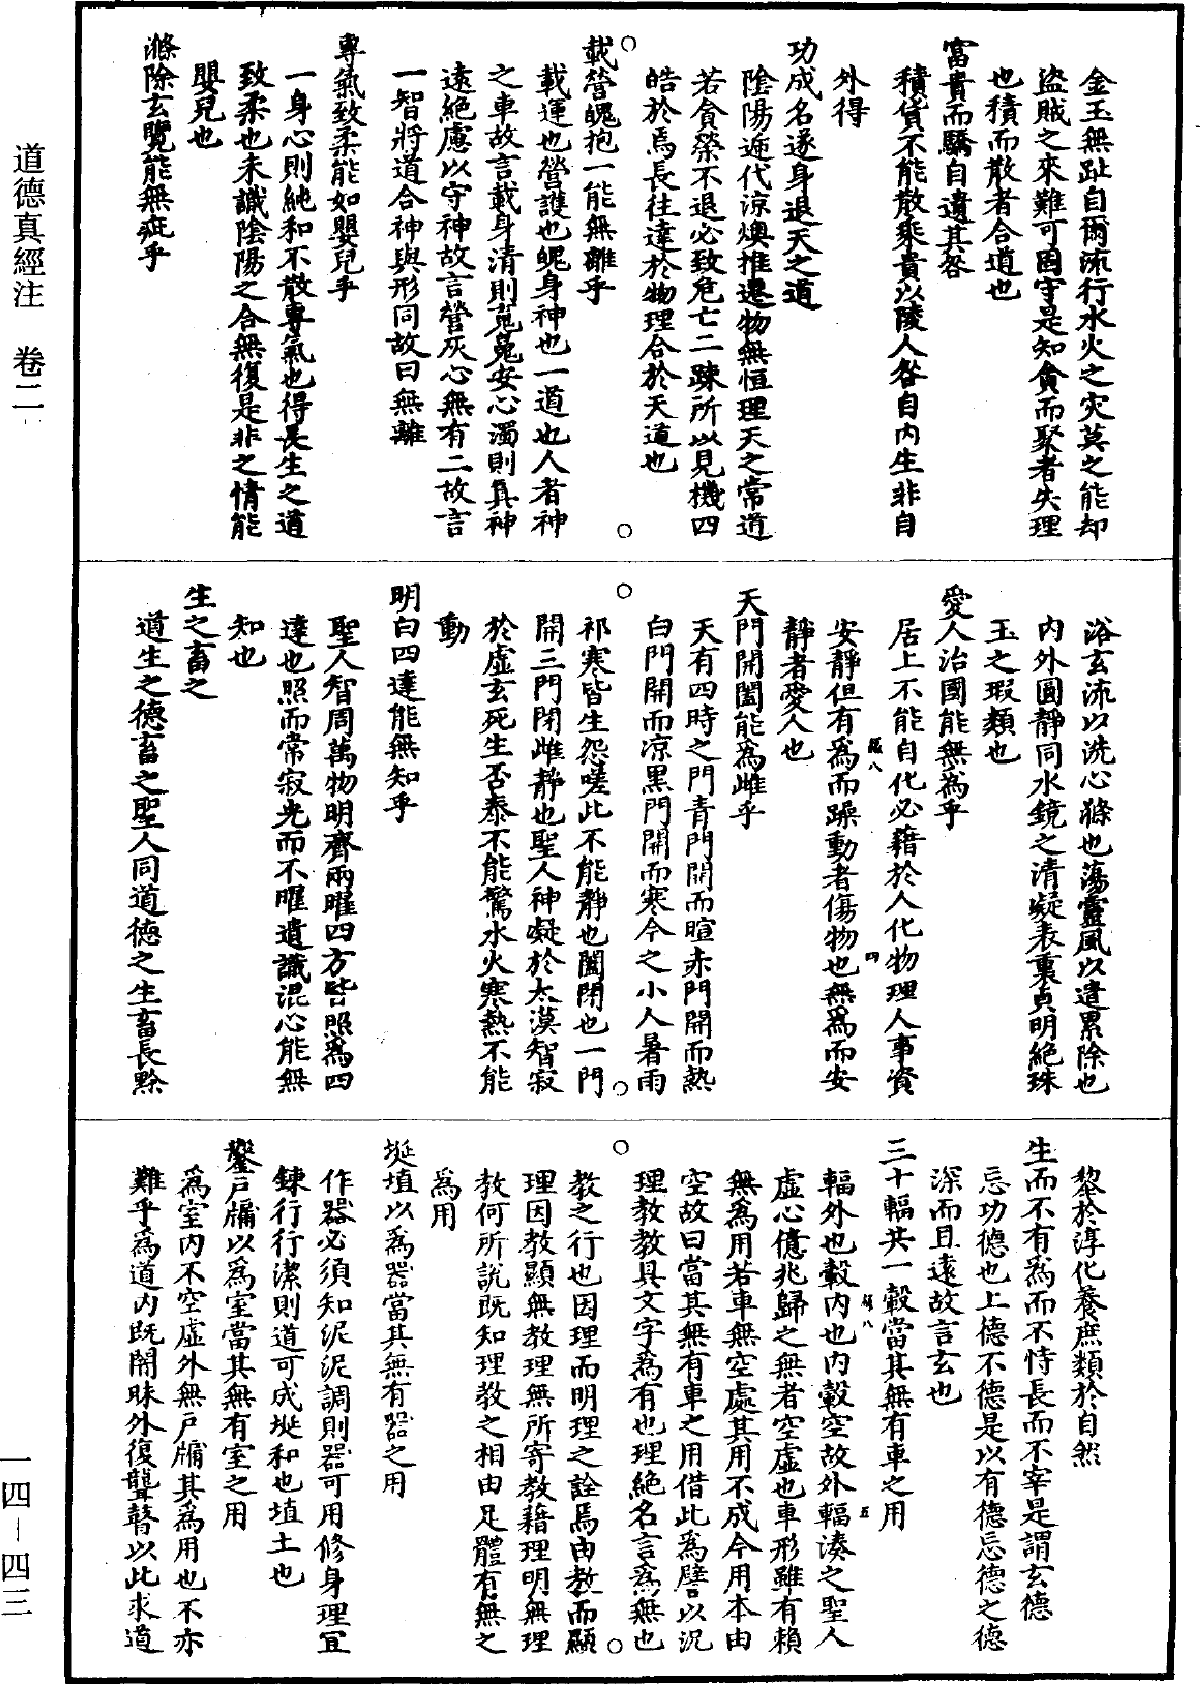 道德真經注　卷二
金玉無趾自爾流行水火之灾莫之能却
盜賊之來難可固守是知貪而聚者失理
也積而散者合道也
富貴而驕自遺其咎
積貨不能散乘貴以陵人咎自内生非自
外得
功成名遂身退天之道
陰陽遞代涼燠推遷物無恒理天之常道
若貪榮不退必致危亡二踈所以見機四
皓於焉長往達於物理合於天道也
載營魄抱一能無離乎
載運也營護也魄身神也一道也人者神
之車故言載身清則䰟魄安心濁則真神
遠絶慮以守神故言營灰心無有二故言
一智將道合神與形同故曰無離
專氣致柔能如嬰兒乎
一身心則純和不散專氣也得長生之道
致柔也未識陰陽之合無復是非之情能
嬰兒也
滌除玄覽能無疵乎
浴玄流以洗心滌也蕩靈風以遣累除也
内外圓靜同水鏡之清凝表裏貞明絶珠
玉之瑕纇也
愛人治國能無為乎
居上不能自化必藉於人化物理人事資
安靜但有為而躁動者傷物也無為而安
靜者愛人也
天門開闔能為雌乎
天有四時之門青門開而暄赤門開而熱
白門開而凉黑門開而寒今之小人暑雨
祁寒皆生怨嗟此不能靜也闔閉也一門
開三門閉雌靜也聖人神凝於太漠智寂
於虛玄死生否泰不能驚水火寒熱不能
動
明白四達能無知乎
聖人智周萬物明齊兩曜四方皆照為四
達也照而常寂光而不曜遺識混心能無
知也
生之畜之
道生之德畜之聖人同道德之生畜長黔
黎於淳化養庶類於自然
生而不有為而不恃長而不宰是謂玄德
忘功德也上德不德是以有德忘德之德
深而且遠故言玄也
三十輻共一轂當其無有車之用
輻外也轂内也内轂空故外輻湊之聖人
虛心億兆歸之無者空虛也車形雖有賴
無為用若車無空處其用不成今用本由
空故曰當其無有車之用借此為譬以況
理教教具文字為有也理絶名言為無也
教之行也因理而明理之詮焉由教而顯
理因教顯無教理無所寄教藉理明無理
教何所説既知理教之相由足體有無之
為用
埏埴以為器當其無有器之用
作器必須知泥泥調則器可用修身理宜
鍊行行潔則道可成埏和也埴土也
鑿戸牖以為室當其無有室之用
為室内不空虛外無戸牖其為用也不亦
難乎為道内既闇昧外復聾瞽以此求道
一四—四三